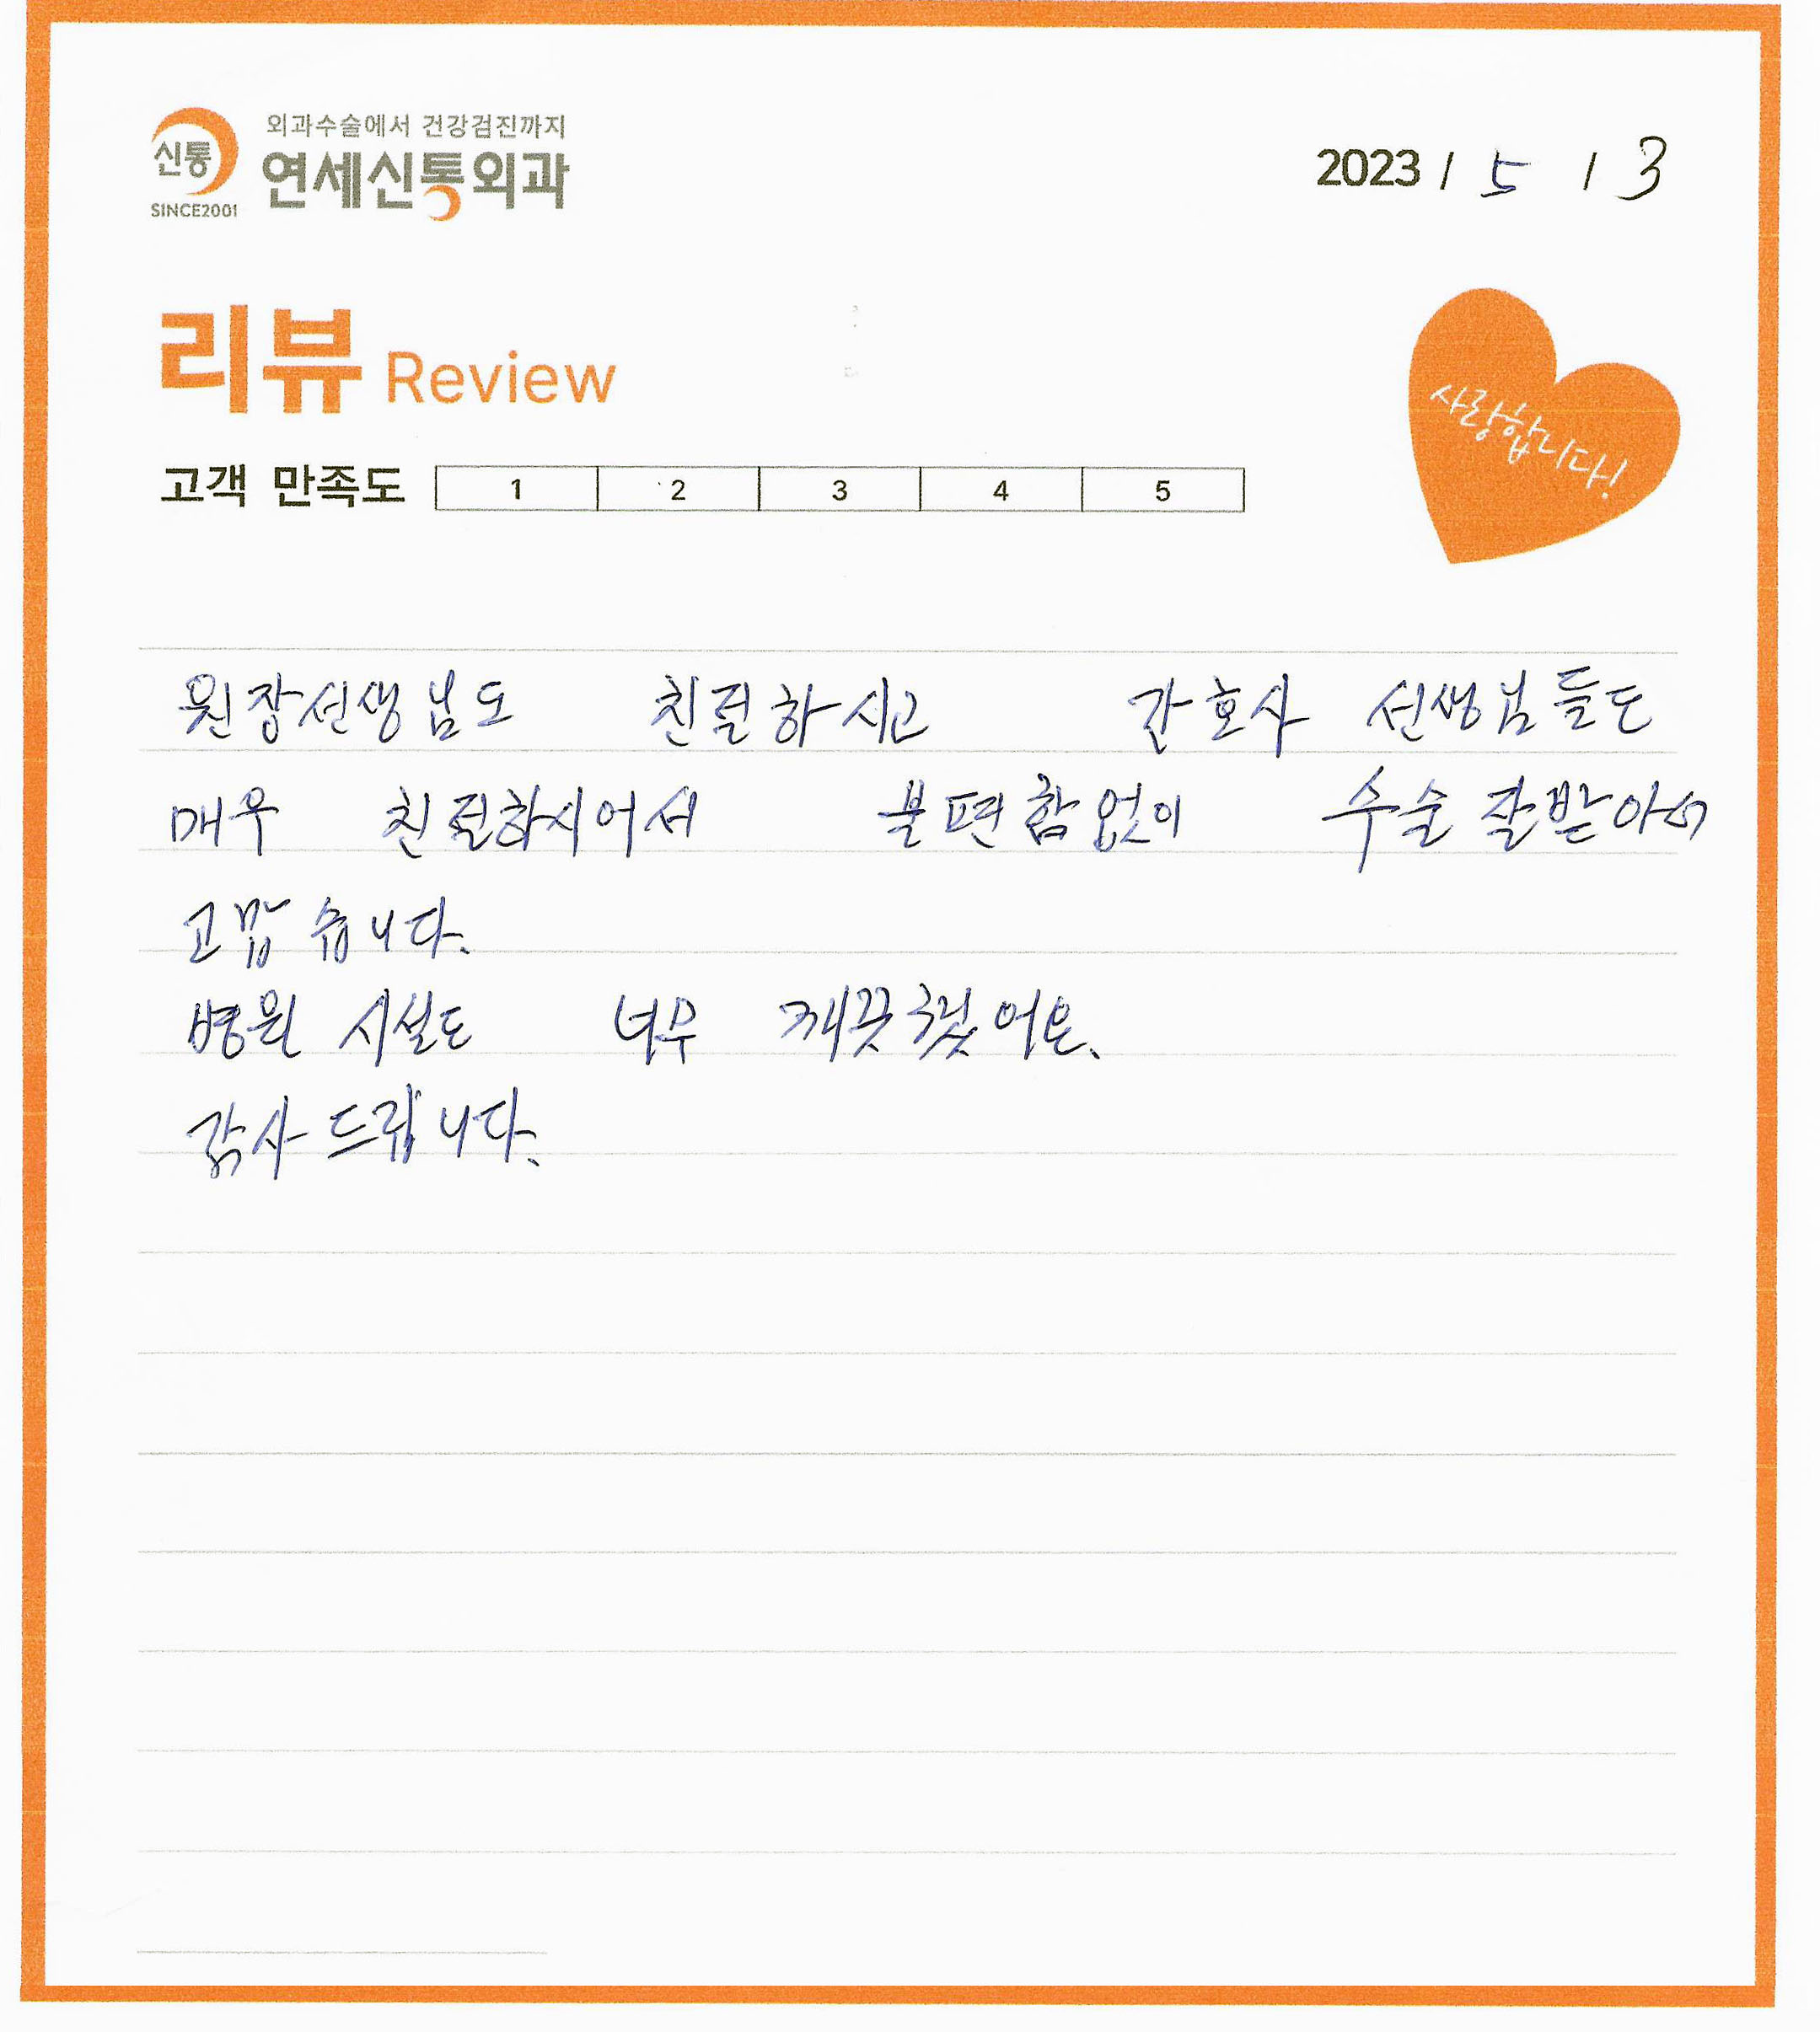 외과수술에서 건강검진까지
신통 연세신통외과
SINCE2001
2023 / 5 / 3
리뷰 Review
사랑합니다!
고객 만족도 1 2 3 4 5
원장선생님도 친절하시고 간호사 선생님들도
매우 친절하시어서 불편함없이 수술 잘받아서
고맙습니다.
병원 시설도 너무 깨끗했어요.
감사드립니다.